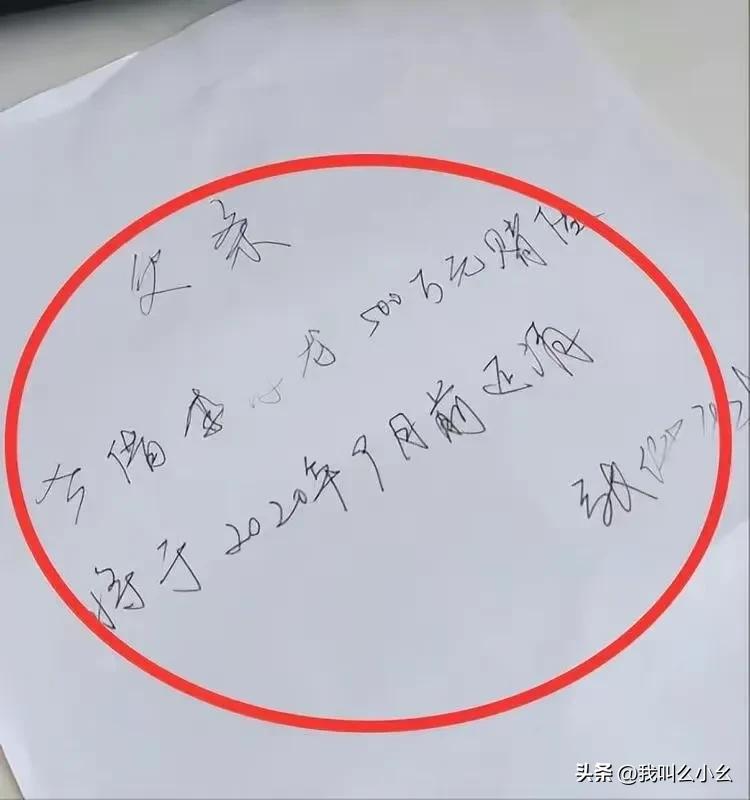 父亲
借李 龙500万元赌债
将于2020年9月前还清
头条 @我叫么小幺